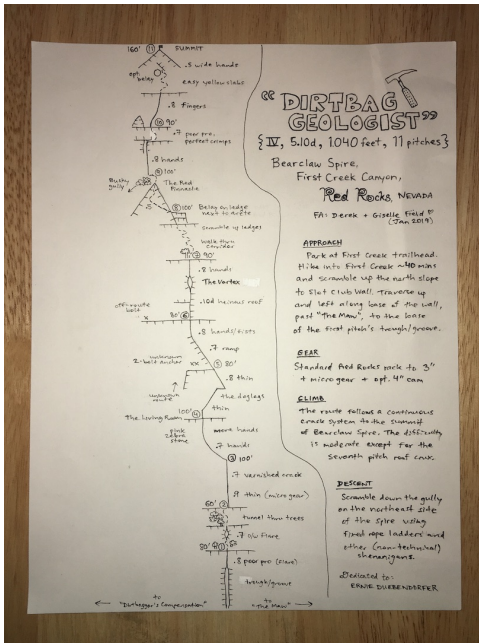 160' 11 SUMMIT
opt. belay
.5 wide hands
easy yellow slabs
.8 fingers
10 90'
.7 poor pro.
perfect crimps
.8 hands
9 100'
Bushy
gully
The Red
Pinnacle
.5
8 100'
Belay on ledge
next to arête
scramble up ledges
walk thru
corridor
7 90'
.8 hands
The Vortex
off-route
bolt
x
.10d heinous roof
80' 6
.8 hands/fists
.7 ramp
unknown
2-bolt anchor
xx
5 80'
.8 thin
unknown
route
the doglegs
100'
4
thin
The Living Room
pink
zebra
stone
more hands
.7 hands
3 100'
.7 varnished crack
.9 thin (micro gear)
60' 2
tunnel thru trees
.7 o/w flare
80' 1
.8 poor pro (flare)
trough/groove
to
"Dirtbagger's Compensation"
to
"The Maw"
"DIRTBAG
GEOLOGIST"
{IV, 5.10d, 1040 feet, 11 pitches}
Bearclaw Spire,
First Creek Canyon,
Red Rocks, NEVADA
FA: Derek + Giselle Field
(Jan 2019)
APPROACH
Park at First Creek trailhead.
Hike into First Creek ~40 mins
and scramble up the north slope
to Slot Club Wall. Traverse up
and left along base of the wall,
past "The Maw", to the base
of the first pitch's trough/groove.
GEAR
Standard Red Rocks rack to 3"
+ micro gear + opt. 4" cam
CLIMB
The route follows a continuous
crack system to the summit
of Bearclaw Spire. The difficulty
is moderate except for the
seventh pitch roof crux.
DESCENT
Scramble down the gully
on the northeast side
of the spire using
fixed rope ladders and
other (non-technical)
shenanigans.
Dedicated to:
ERNIE DUEBENDORFER